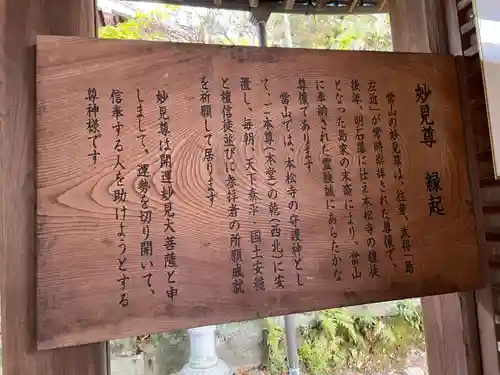 妙見尊　縁起
当山の妙見尊は、往昔、武将「島
左近」が常時崇拝された尊像で、
後年、明石藩に仕え本松寺の檀徒
となった島家の末裔により、当山
に奉納された霊験誠にあらたかな
尊像であります
当山では、本松寺の守護神とし
て、ご本尊(本堂)の乾(西北)に安
置し、毎朝、天下泰平　国土安穏
と檀信徒並びに参拝者の所願成就
を祈願して居ります
妙見尊は開運妙見大菩薩と申
しまして、運勢を切り開いて、
信奉する人を助けようとする
尊神様です